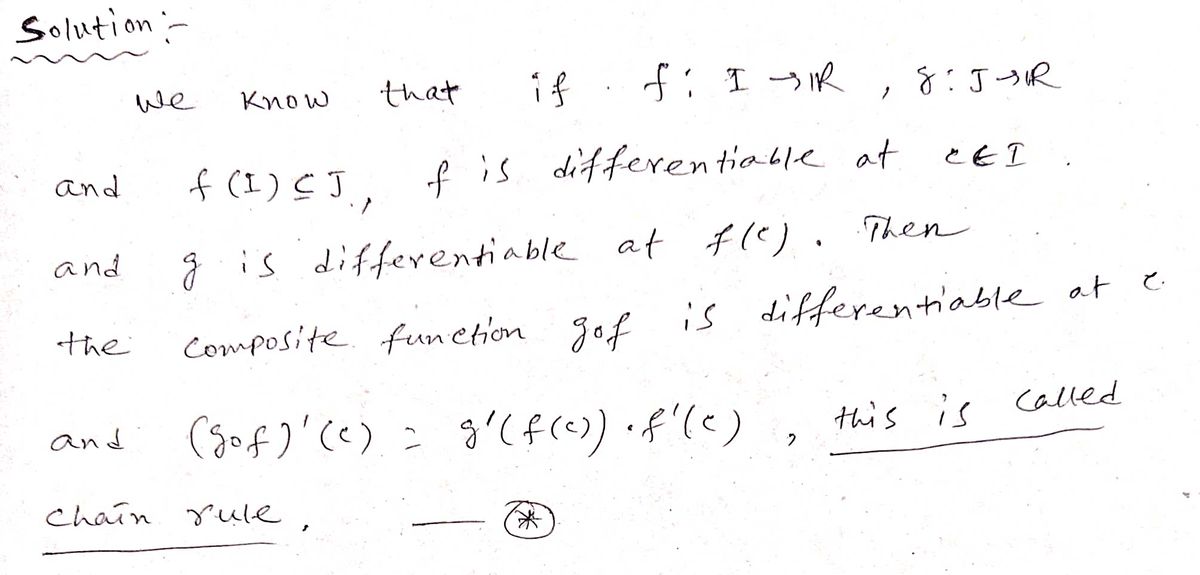 Solution :-
We know that if f : I → ℝ , g : J → ℝ
and f (I) ⊆ J , f is differentiable at c ∈ I .
and g is differentiable at f(c) . Then
the composite function gof is differentiable at c.
and (gof)'(c) = g'(f(c)) · f'(c) , this is called
chain rule . — ⊛